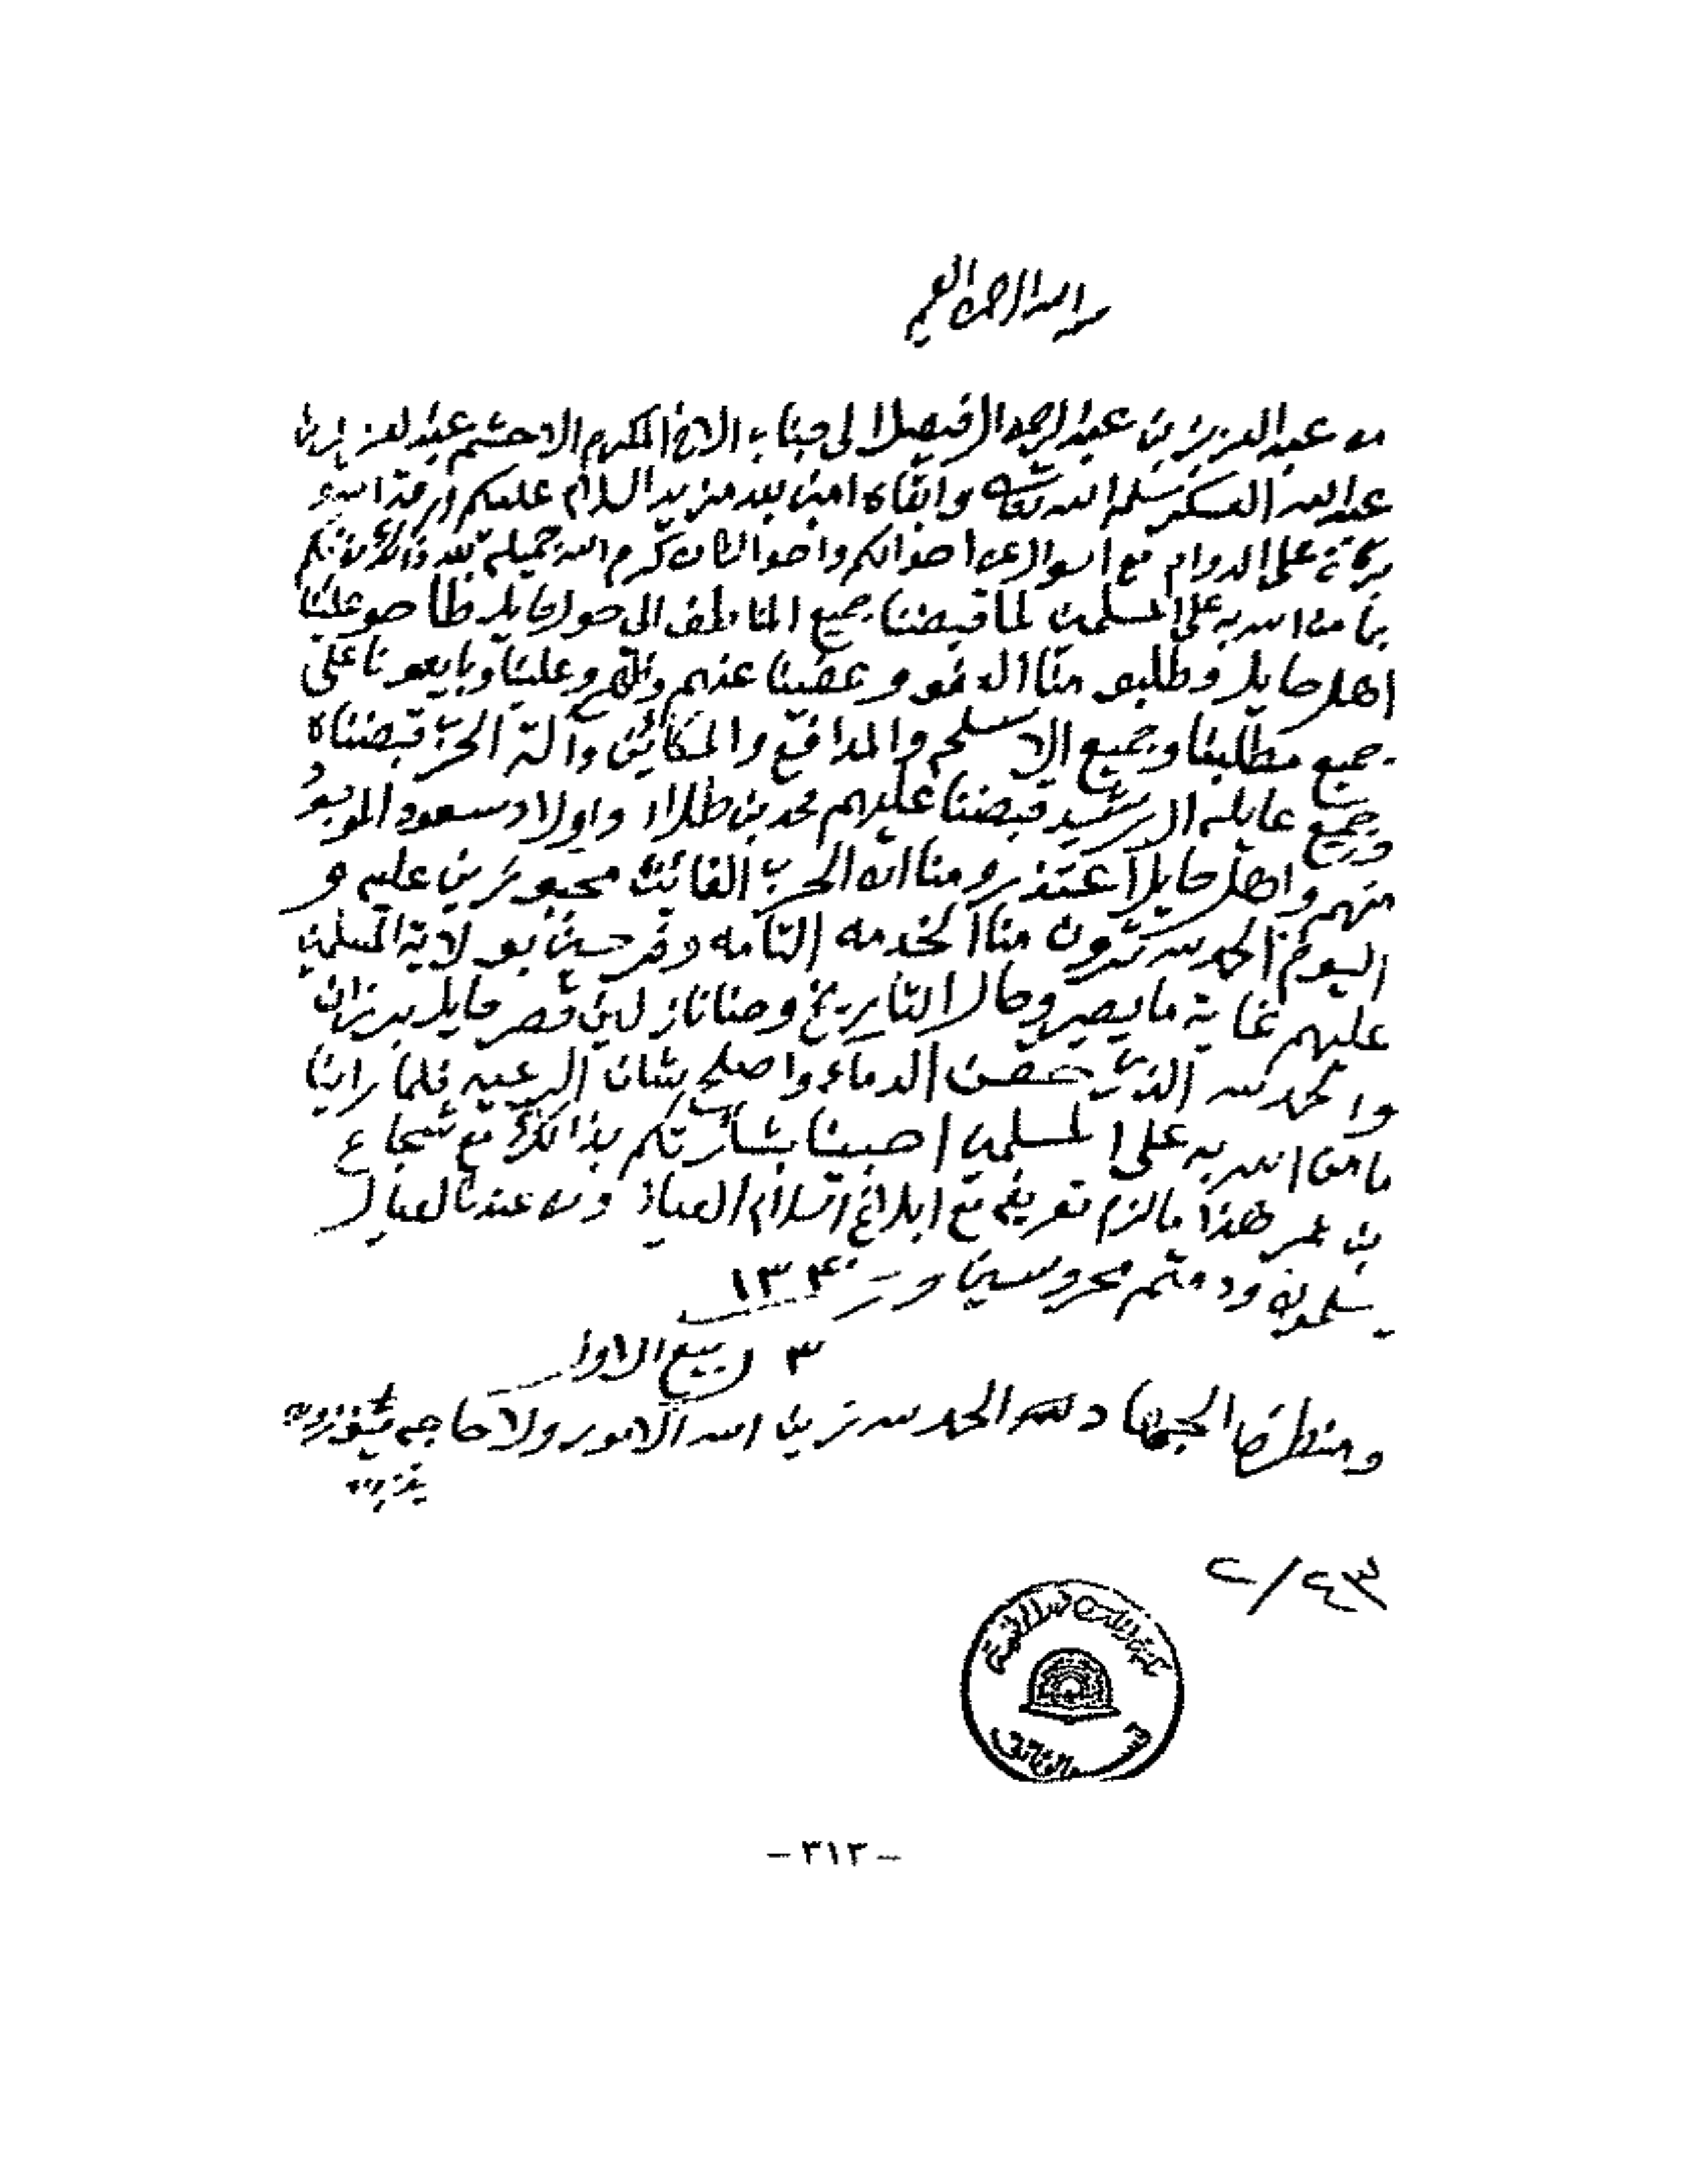 بسم الله الرحمن الرحيم
من عبد العزيز بن عبد الرحمن الفيصل الى جناب الاخ المكرم الاحشم عبد العزيز بن
عبد الله العسكر سلمه الله تعالى وابقاه امين بعد مزيد السلام عليكم ورحمة الله و
بركاته على الدوام مع السوال عن احوالكم واحوالنا من كرم الله جميله بعد ذالك نبشركم
بما من الله به على المسلمين لما قبضنا جميع المناطف الى حول حايل طاحو علينا
اهل حايل وطلبو منا العفو وعفينا عنهم وظهرو علينا وبايعونا على
جميع مطلبنا وجميع الاسلحه والمدافع والمكاين وآلة الحرب قبضناه
وجميع عايلة الرشيد قبضنا عليهم محمد بن طلال واولاد سعود الموجود
منهم واهل حايل اعتذرو منا انه الحرب الفائت مجبورين عليه و
اليوم الحمد لله يدون منا الخدمه التامه وفرحين بولاية المسلمين
عليهم غاية ما يصير وحال التاريخ وحنا نازلين قصر حايل برزان
والحمد لله الذي حقن الدماء واصلح شان الرعيه فلما راينا
ما من الله به على المسلمين احبينا بشارتكم بذالك مع شجاع
بن عمر هذا مالزم تعريفه مع ابلاغ السلام العيال ومن عندنا العيال
يسلمون ودمتم محروسين و ١٣٤٠
٣ ربيع الاول
ومنطرف الجهاد الحمد لله زين الله الامور ولا حاجه
٢/٤٣
- ٣١٣ -